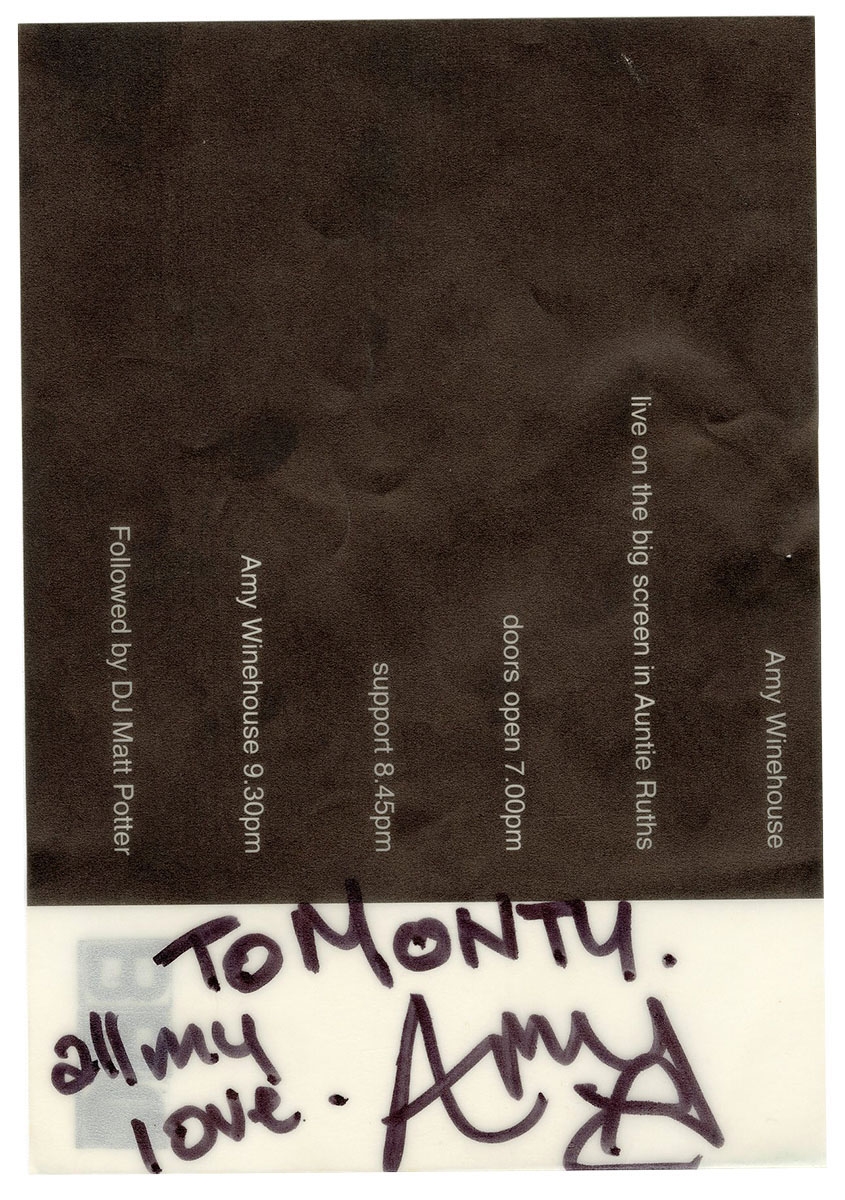 Amy Winehouse
live on the big screen in Auntie Ruths
doors open 7.00pm
support 8.45pm
Amy Winehouse 9.30pm
Followed by DJ Matt Potter
TO MONTY.
all my
love.
Amy